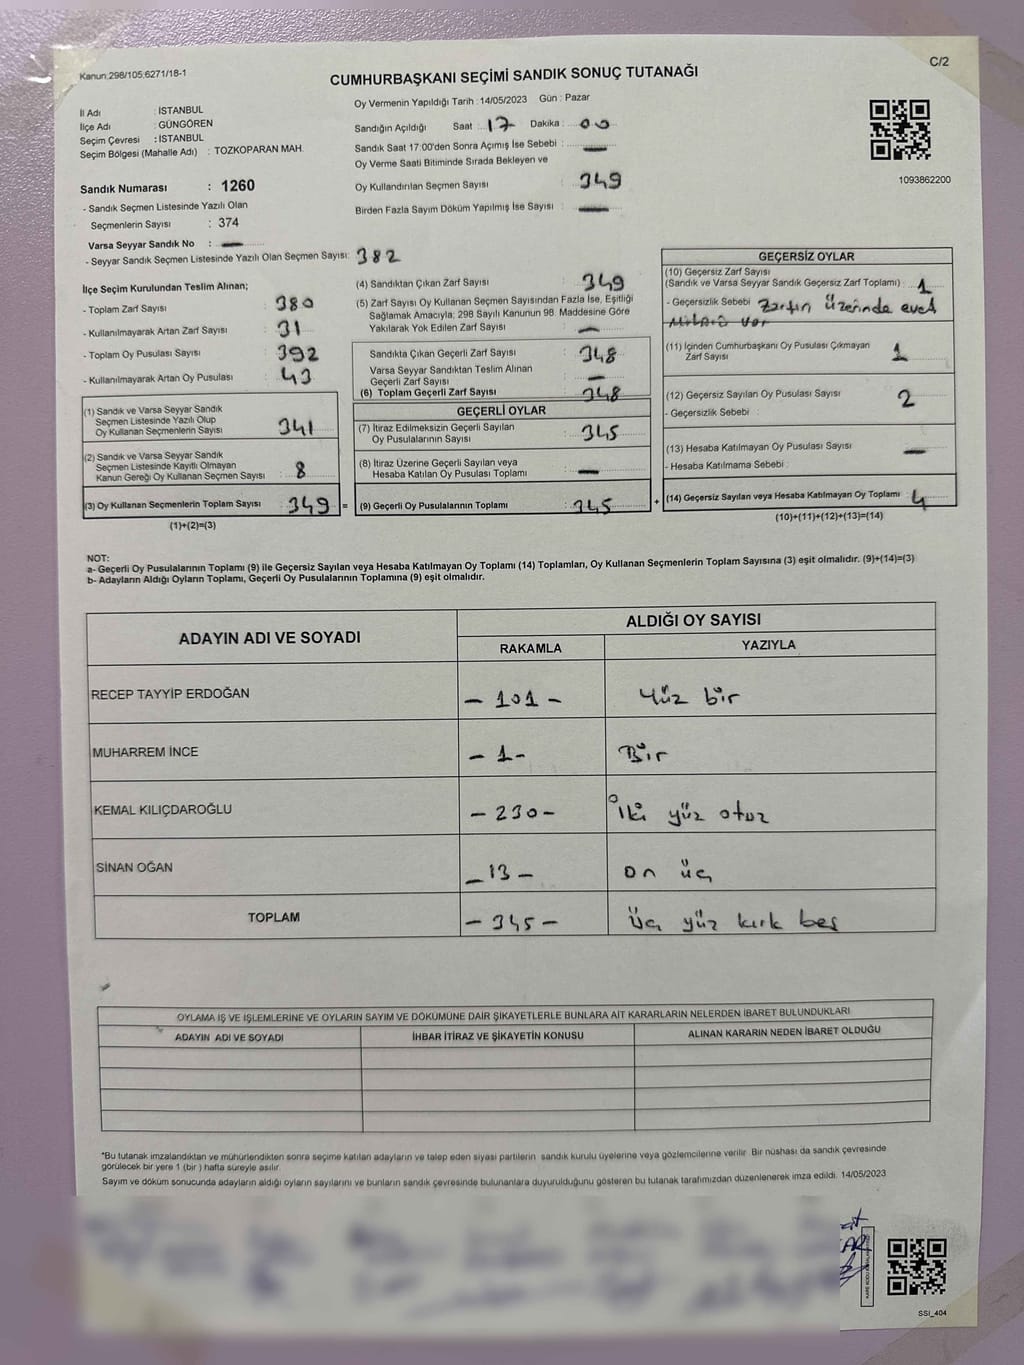 Kanun:298/105;6271/18-1
C/2
CUMHURBAŞKANI SEÇİMİ SANDIK SONUÇ TUTANAĞI
İl Adı : İSTANBUL
İlçe Adı : GÜNGÖREN
Seçim Çevresi : İSTANBUL
Seçim Bölgesi (Mahalle Adı) : TOZKOPARAN MAH.
Sandık Numarası : 1260
- Sandık Seçmen Listesinde Yazılı Olan
Seçmenlerin Sayısı : 374
Varsa Seyyar Sandık No : —
- Seyyar Sandık Seçmen Listesinde Yazılı Olan Seçmen Sayısı: 382
Oy Vermenin Yapıldığı Tarih : 14/05/2023 Gün : Pazar
Sandığın Açıldığı Saat : 17 Dakika : 00
Sandık Saat 17:00'den Sonra Açımış İse Sebebi : —
Oy Verme Saati Bitiminde Sırada Bekleyen ve
Oy Kullandırılan Seçmen Sayısı : 349
Birden Fazla Sayım Döküm Yapılmış İse Sayısı : —
1093862200
İlçe Seçim Kurulundan Teslim Alınan;
- Toplam Zarf Sayısı : 380
- Kullanılmayarak Artan Zarf Sayısı : 31
- Toplam Oy Pusulası Sayısı : 392
- Kullanılmayarak Artan Oy Pusulası : 43
(1) Sandık ve Varsa Seyyar Sandık
Seçmen Listesinde Yazılı Olup
Oy Kullanan Seçmenlerin Sayısı : 341
(2) Sandık ve Varsa Seyyar Sandık
Seçmen Listesinde Kayıtlı Olmayan
Kanun Gereği Oy Kullanan Seçmen Sayısı : 8
(3) Oy Kullanan Seçmenlerin Toplam Sayısı : 349 =
(1)+(2)=(3)
(4) Sandıktan Çıkan Zarf Sayısı : 349
(5) Zarf Sayısı Oy Kullanan Seçmen Sayısından Fazla İse, Eşitliği
Sağlamak Amacıyla; 298 Sayılı Kanunun 98. Maddesine Göre
Yakılarak Yok Edilen Zarf Sayısı : —
Sandıkta Çıkan Geçerli Zarf Sayısı : 348
Varsa Seyyar Sandıktan Teslim Alınan
Geçerli Zarf Sayısı : —
(6) Toplam Geçerli Zarf Sayısı : 348
GEÇERLİ OYLAR
(7) İtiraz Edilmeksizin Geçerli Sayılan
Oy Pusulalarının Sayısı : 345
(8) İtiraz Üzerine Geçerli Sayılan veya
Hesaba Katılan Oy Pusulası Toplamı : —
(9) Geçerli Oy Pusulalarının Toplamı : 345 +
GEÇERSİZ OYLAR
(10) Geçersiz Zarf Sayısı
(Sandık ve Varsa Seyyar Sandık Geçersiz Zarf Toplamı) : 1
- Geçersizlik Sebebi : Zarfın üzerinde evet
var
(11) İçinden Cumhurbaşkanı Oy Pusulası Çıkmayan
Zarf Sayısı : 1
(12) Geçersiz Sayılan Oy Pusulası Sayısı : 2
- Geçersizlik Sebebi :
(13) Hesaba Katılmayan Oy Pusulası Sayısı : —
- Hesaba Katılmama Sebebi :
(14) Geçersiz Sayılan veya Hesaba Katılmayan Oy Toplamı : 4
(10)+(11)+(12)+(13)=(14)
NOT:
a- Geçerli Oy Pusulalarının Toplamı (9) ile Geçersiz Sayılan veya Hesaba Katılmayan Oy Toplamı (14) Toplamları, Oy Kullanan Seçmenlerin Toplam Sayısına (3) eşit olmalıdır. (9)+(14)=(3)
b- Adayların Aldığı Oyların Toplamı, Geçerli Oy Pusulalarının Toplamına (9) eşit olmalıdır.
ADAYIN ADI VE SOYADI ALDIĞI OY SAYISI
RAKAMLA YAZIYLA
RECEP TAYYİP ERDOĞAN – 101 – Yüz bir
MUHARREM İNCE – 1 – Bir
KEMAL KILIÇDAROĞLU – 230 – İki yüz otuz
SİNAN OĞAN – 13 – on üç
TOPLAM – 345 – üç yüz kırk beş
OYLAMA İŞ VE İŞLEMLERİNE VE OYLARIN SAYIM VE DÖKÜMÜNE DAİR ŞİKAYETLERLE BUNLARA AİT KARARLARIN NELERDEN İBARET BULUNDUKLARI
ADAYIN ADI VE SOYADI İHBAR İTİRAZ VE ŞİKAYETİN KONUSU ALINAN KARARIN NEDEN İBARET OLDUĞU
*Bu tutanak imzalandıktan ve mühürlendikten sonra seçime katılan adayların ve talep eden siyasi partilerin sandık kurulu üyelerine veya gözlemcilerine verilir. Bir nüshası da sandık çevresinde
görülecek bir yere 1 (bir) hafta süreyle asılır.
Sayım ve döküm sonucunda adayların aldığı oyların sayılarını ve bunların sandık çevresinde bulunanlara duyurulduğunu gösteren bu tutanak tarafımızdan düzenlenerek imza edildi. 14/05/2023
SSİ_404